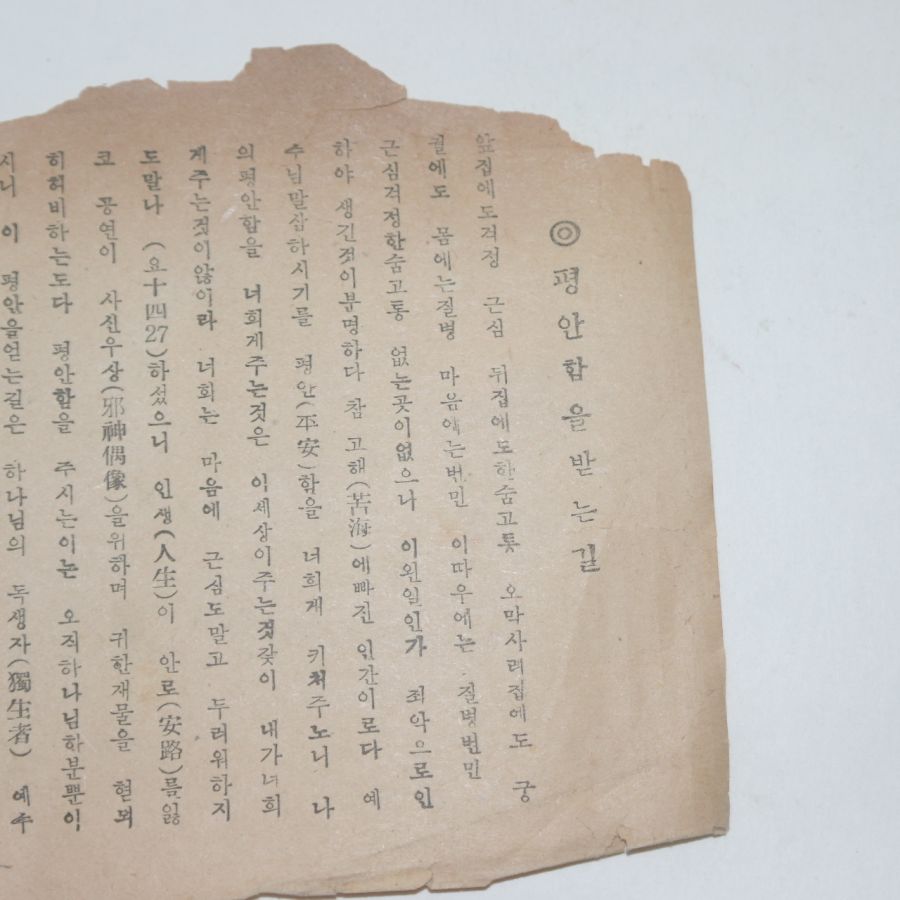 ◎ 평안함을받는길
앞집에도걱정 근심 뒤집에도한숨고통 오막사리집에도 궁
궐에도 몸에는질병 마음에는번민 이따우에는 질병번민
근심걱정한숨고통 없는곳이없으나 이왼일인가 죄악으로인
하야 생긴것이분명하다 참 고해(苦海)에빠진 인간이로다 예
수님말삼하시기를 평안(平安)함을 너희게 키처주노니 나
의평안함을 너희게주는것은 이세상이주는것갗이 내가너희
게주는것이않이라 너희는 마음에 근심도말고 두러워하지
도말나 (요十四27)하섰으니 인생(人生)이 안로(安路)를잃
코 공연이 사신우상(邪神偶像)을위하며 귀한재물을 헌되
히허비하는도다 평안함을 주시는이는 오직하나님하분뿐이
시니 이 평안을얻는길은 하나님의 독생자(獨生者) 예수